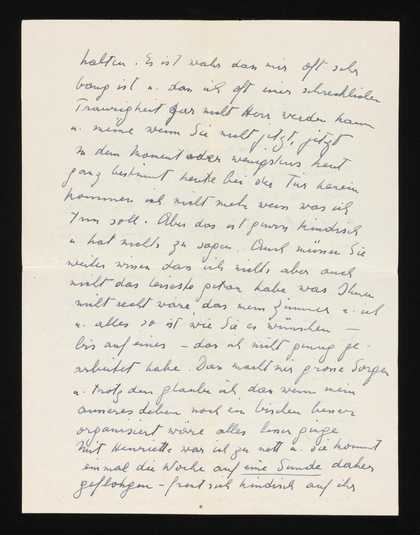 halten. Es ist wahr dass mir oft sehr
bang ist u. dass ich oft einer schrecklichen
Traurigkeit gar nicht Herr werden kann
u. meine wenn Sie nicht jetzt, jetzt
in dem Moment oder wenigstens heut
ganz bestimmt heute bei der Tür herein
kommen ich nicht mehr weiss was ich
tun soll. Aber das ist gewiss kindisch
u hat nichts zu sagen. Auch müssen Sie
weiter wissen dass ich nichts aber auch
nicht das leiseste getan habe was Ihnen
nicht recht wäre dass mein Zimmer u. ich
u. alles so ist wie Sie es wünschen –
bis auf eines – dass ich nicht genug ge-
arbeitet habe. Das macht mir grosse Sorgen
u. trotzdem glaube ich dass wenn mein
äusseres Leben noch ein bischen besser
organisiert wäre alles besser ginge
Mit Henriette war ich zu nett u. sie kommt
einmal die Woche auf eine Stunde daher
geflogen – freut sich kindisch auf ihr